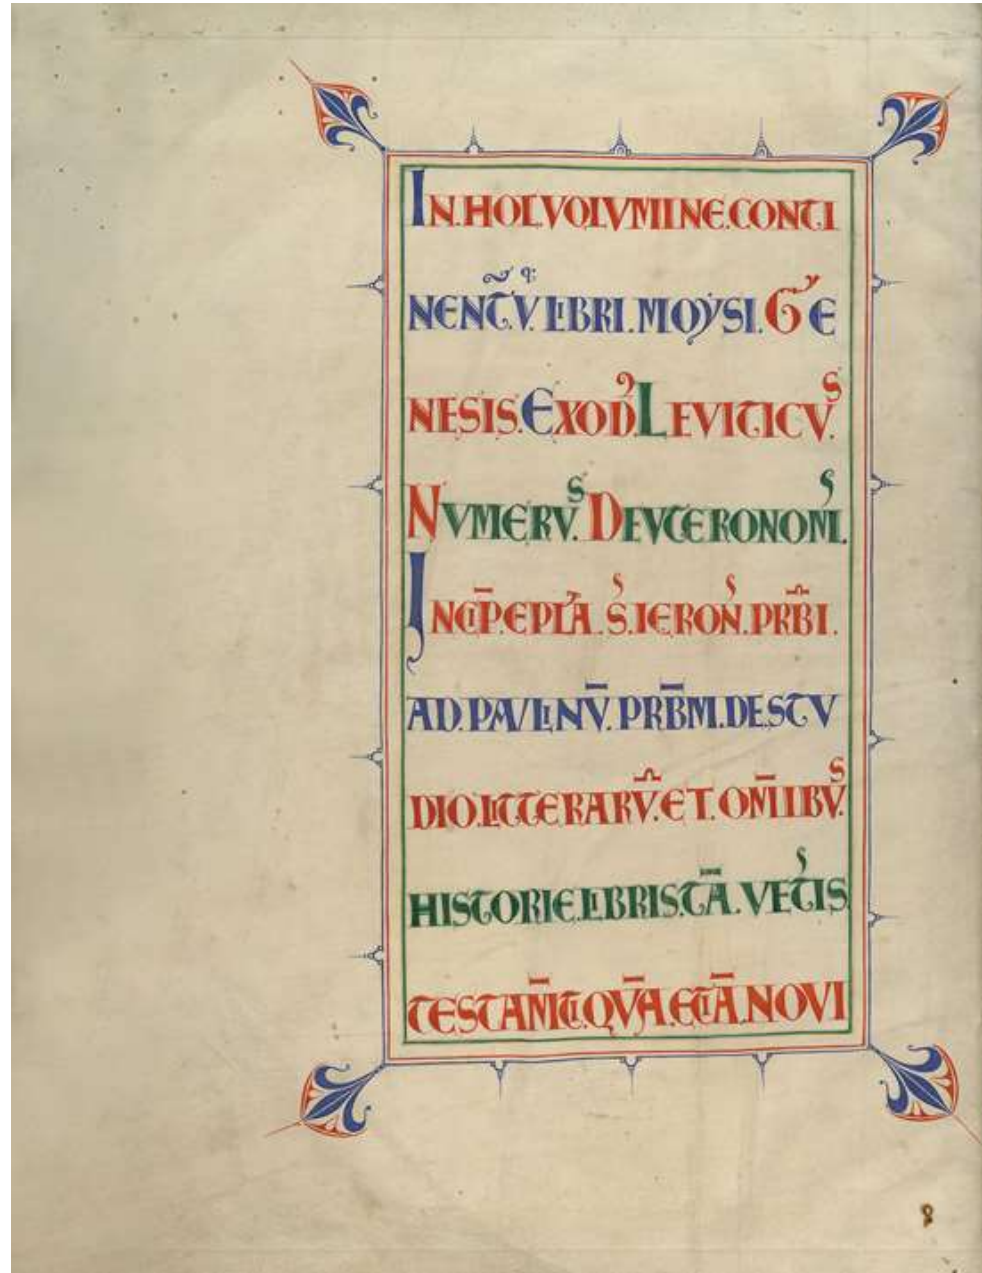 IN.HOC.VOLVMINE.CONTI
NENT̃.V.q; LIBRI.MOYSI.GE
NESIS.EXODꝰ.LEVITICVˢ.
NVMERVˢ.DEVTERONOMˢ.
INCIP̄.EPLA.Sˢ.IERONˢ.PRB̄I.
AD.PAVLINV̄.PRB̄M.DE.STV
DIO.LITTERARV̄.ET.OM̄IBVˢ.
HISTORIE.LIBRIS.TĀ.VETˢIS
TESTAM̄TI.QVĀ.ETIĀ.NOVI